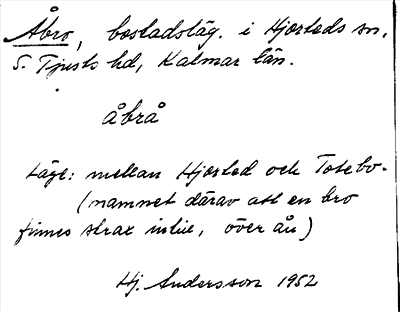 Åbro, bostadsläg. i Hjorteds sn,
S. Tjusts hd, Kalmar län.
åbrå
Läge: mellan Hjorted och Totebo.
(namnet därav att en bro
finnes strax intill, över ån)
Hj. Andersson 1952